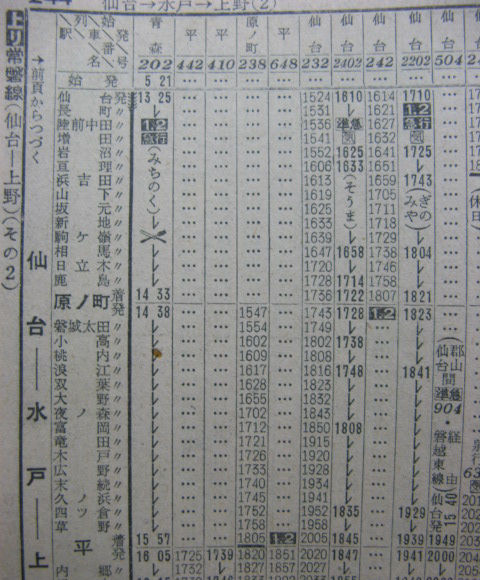 仙台→水戸→上野(2)
上り常磐線(仙台―上野)(その2)
→前頁からつづく
仙台―水戸―上
列車番号 202 442 410 238 648 232 2402 242 2202 504
駅名 始発 青森 平 平 原ノ町 平 仙台 仙台 仙台 仙台 仙台
始発 5 21 … … … … … … … …
仙台発 13 25 … … … … 1524 1610 1614 1710
長町〃 … … … … 1531 レ 1621 1.2
陸前中田〃 1.2 … … … … 1536 準急 1627 急行
増田〃 急行 … … … … 1541 1632
岩沼〃 (みちのく) … … … … 1552 1625 1641 1725
亘理〃 … … … … 1606 1633 1651 レ
浜吉田〃 … … … … 1613 (そうま) 1659 1743
山下〃 … … … … 1619 1705 (みやぎの)
坂元〃 … … … … 1625 1711
新地〃 … … … … 1633 1718
駒ケ嶺〃 … … … … 1639 レ 1729 レ
相馬〃 … … … … 1647 1658 1738 1804
日立木〃 レ … … … … 1720 レ 1746 レ
鹿島〃 レ … … … … 1728 1714 1758 レ
原ノ町着 14 33 … … … … 1736 1722 1807 1821
原ノ町発 14 38 … … 1547 … 1743 1728 1.2 1823
磐城太田〃 レ … … 1554 … 1749 レ … レ
小高〃 レ … … 1602 … 1802 1738 … レ
桃内〃 … … 1609 … 1808 レ … レ
浪江〃 レ … … 1617 … 1816 1748 … 1841
双葉〃 レ … … 1628 … 1823 レ … レ
大野〃 レ … … 1655 … 1832 レ … レ
夜ノ森〃 レ … … 1702 … 1843 レ … レ
富岡〃 レ … … 1712 … 1850 1808 … レ
竜田〃 レ … … 1721 … 1915 レ … レ
木戸〃 レ … … 1726 … 1920 レ … レ
広野〃 レ … … 1733 … 1928 レ … レ
末続〃 レ … … 1740 … 1934 レ … レ
久ノ浜〃 レ … … 1745 … 1941 レ … レ
四ツ倉〃 レ … … 1752 … 1952 1835 … 1929
草野〃 レ … … 1758 … 1958 レ … レ
平着 15 57 … … 1805 1.2 2005 1845 … 1939 1949
平発 16 05 1725 1739 1820 1851 2020 1847 … 1941 2000
内郷〃 レ 1732 レ 1827 1857 2027 レ … レ レ
仙台郡山間
準急
904
・磐越東線経由
仙台発
15 40